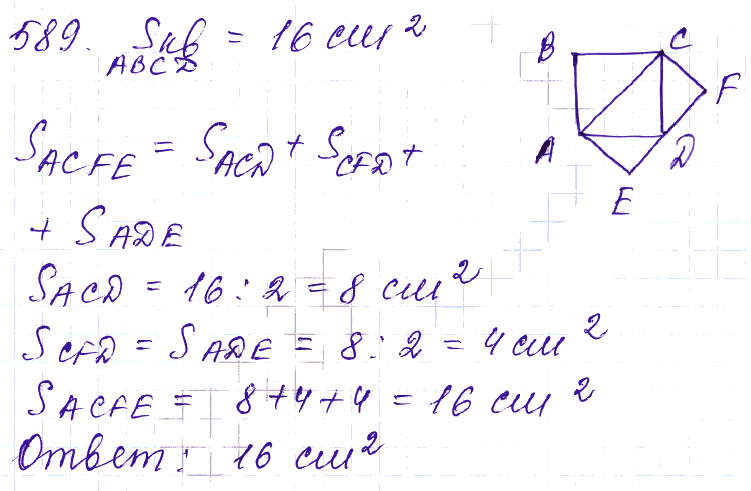 589. Sкв = 16 см²
ABCD
S_ACFE = S_ACD + S_CFD +
+ S_ADE
S_ACD = 16 : 2 = 8 см²
S_CFD = S_ADE = 8 : 2 = 4 см²
S_ACFE = 8+4+4 = 16 см²
Ответ: 16 см²
B C
F
A D
E